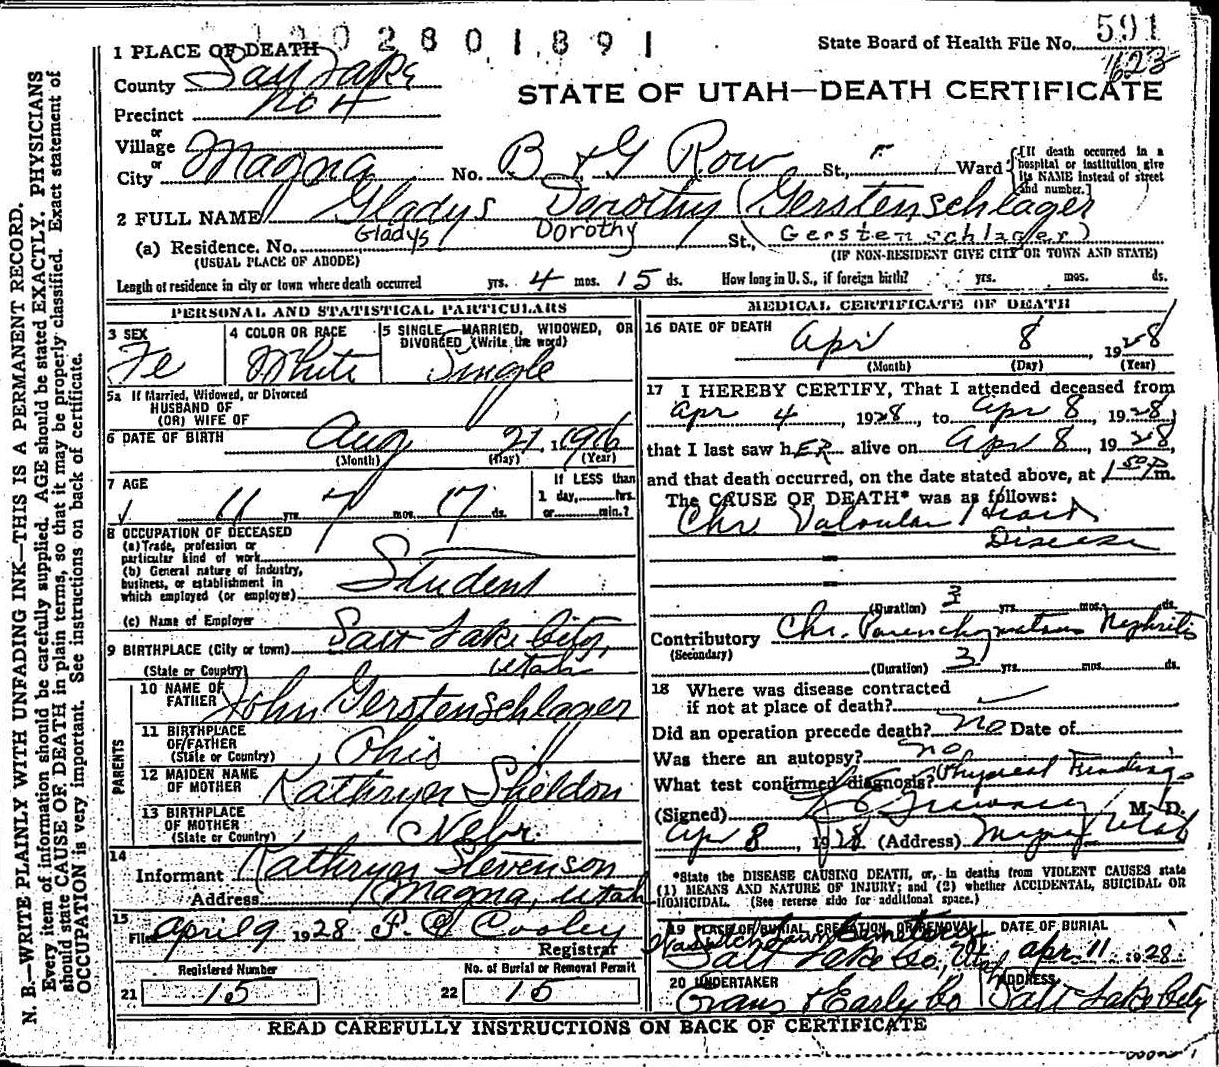 1002801891
591
State Board of Health File No.
1623
1 PLACE OF DEATH
County Salt Lake
STATE OF UTAH—DEATH CERTIFICATE
Precinct No 4
or
Village
or
City Magna No. B & G Row St., Ward
{[If death occurred in a hospital or institution give its NAME instead of street and number.]
2 FULL NAME Gladys Dorothy (Gerstenschlager
Gladys Dorothy (Gerstenschlager)
(a) Residence. No. St.,
(USUAL PLACE OF ABODE) (IF NON-RESIDENT GIVE CITY OR TOWN AND STATE)
Length of residence in city or town where death occurred yrs. 4 mos. 15 ds. How long in U. S., if foreign birth? yrs. mos. ds.
PERSONAL AND STATISTICAL PARTICULARS
3 SEX Fe
4 COLOR OR RACE White
5 SINGLE, MARRIED, WIDOWED, OR DIVORCED (Write the word) Single
5a If Married, Widowed, or Divorced
HUSBAND OF
(OR) WIFE OF
6 DATE OF BIRTH Aug 21, 1916
(Month) (Day) (Year)
7 AGE 11 yrs 7 mos. 17 ds.
If LESS than
1 day, hrs.
or min.?
8 OCCUPATION OF DECEASED
(a) Trade, profession or particular kind of work Student
(b) General nature of industry, business, or establishment in which employed (or employer)
(c) Name of Employer
9 BIRTHPLACE (City or town) Salt Lake City,
(State or Country) Utah
PARENTS
10 NAME OF FATHER John Gerstenschlager
11 BIRTHPLACE OF FATHER (State or Country) Ohio
12 MAIDEN NAME OF MOTHER Kathryn Sheldon
13 BIRTHPLACE OF MOTHER (State or Country) Nebr.
14
Informant Kathryn Stevenson
Address Magna, Utah
15
Filed April 9 1928 Cooley
Registrar
Registered Number
21 15
No. of Burial or Removal Permit
22 15
MEDICAL CERTIFICATE OF DEATH
16 DATE OF DEATH Apr 8, 1928
(Month) (Day) (Year)
17 I HEREBY CERTIFY, That I attended deceased from
Apr 4, 1928, to Apr 8, 1928,
that I last saw hER alive on Apr 8, 1928,
and that death occurred, on the date stated above, at 1 50 P m.
The CAUSE OF DEATH* was as follows:
Chr Valvular Heart
Disease
(Duration) 3 yrs. mos. ds.
Contributory Chr. Parenchymatous Nephritis
(Secondary)
(Duration) 3 yrs. mos. ds.
18 Where was disease contracted
if not at place of death?
Did an operation precede death? no Date of
Was there an autopsy? no
What test confirmed diagnosis? Physical Findings
(Signed) M. D.
Apr 8, 1928 (Address) Magna, Utah
*State the DISEASE CAUSING DEATH, or, in deaths from VIOLENT CAUSES state
(1) MEANS AND NATURE OF INJURY; and (2) whether ACCIDENTAL, SUICIDAL OR
HOMICIDAL. (See reverse side for additional space.)
19 PLACE OF BURIAL, CREMATION, OR REMOVAL
Wasatch Lawn Cemetery
Salt Lake Co, Utah
DATE OF BURIAL
Apr. 11 1928
20 UNDERTAKER
Evans & Early Co
ADDRESS
Salt Lake City
READ CAREFULLY INSTRUCTIONS ON BACK OF CERTIFICATE
N. B.—WRITE PLAINLY WITH UNFADING INK—THIS IS A PERMANENT RECORD.
Every item of information should be carefully supplied. AGE should be stated EXACTLY. PHYSICIANS
should state CAUSE OF DEATH in plain terms, so that it may be properly classified. Exact statement of
OCCUPATION is very important. See instructions on back of certificate.